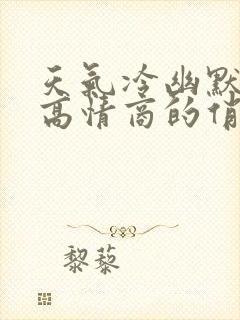 天气冷幽默
高情商的俏
黎藜